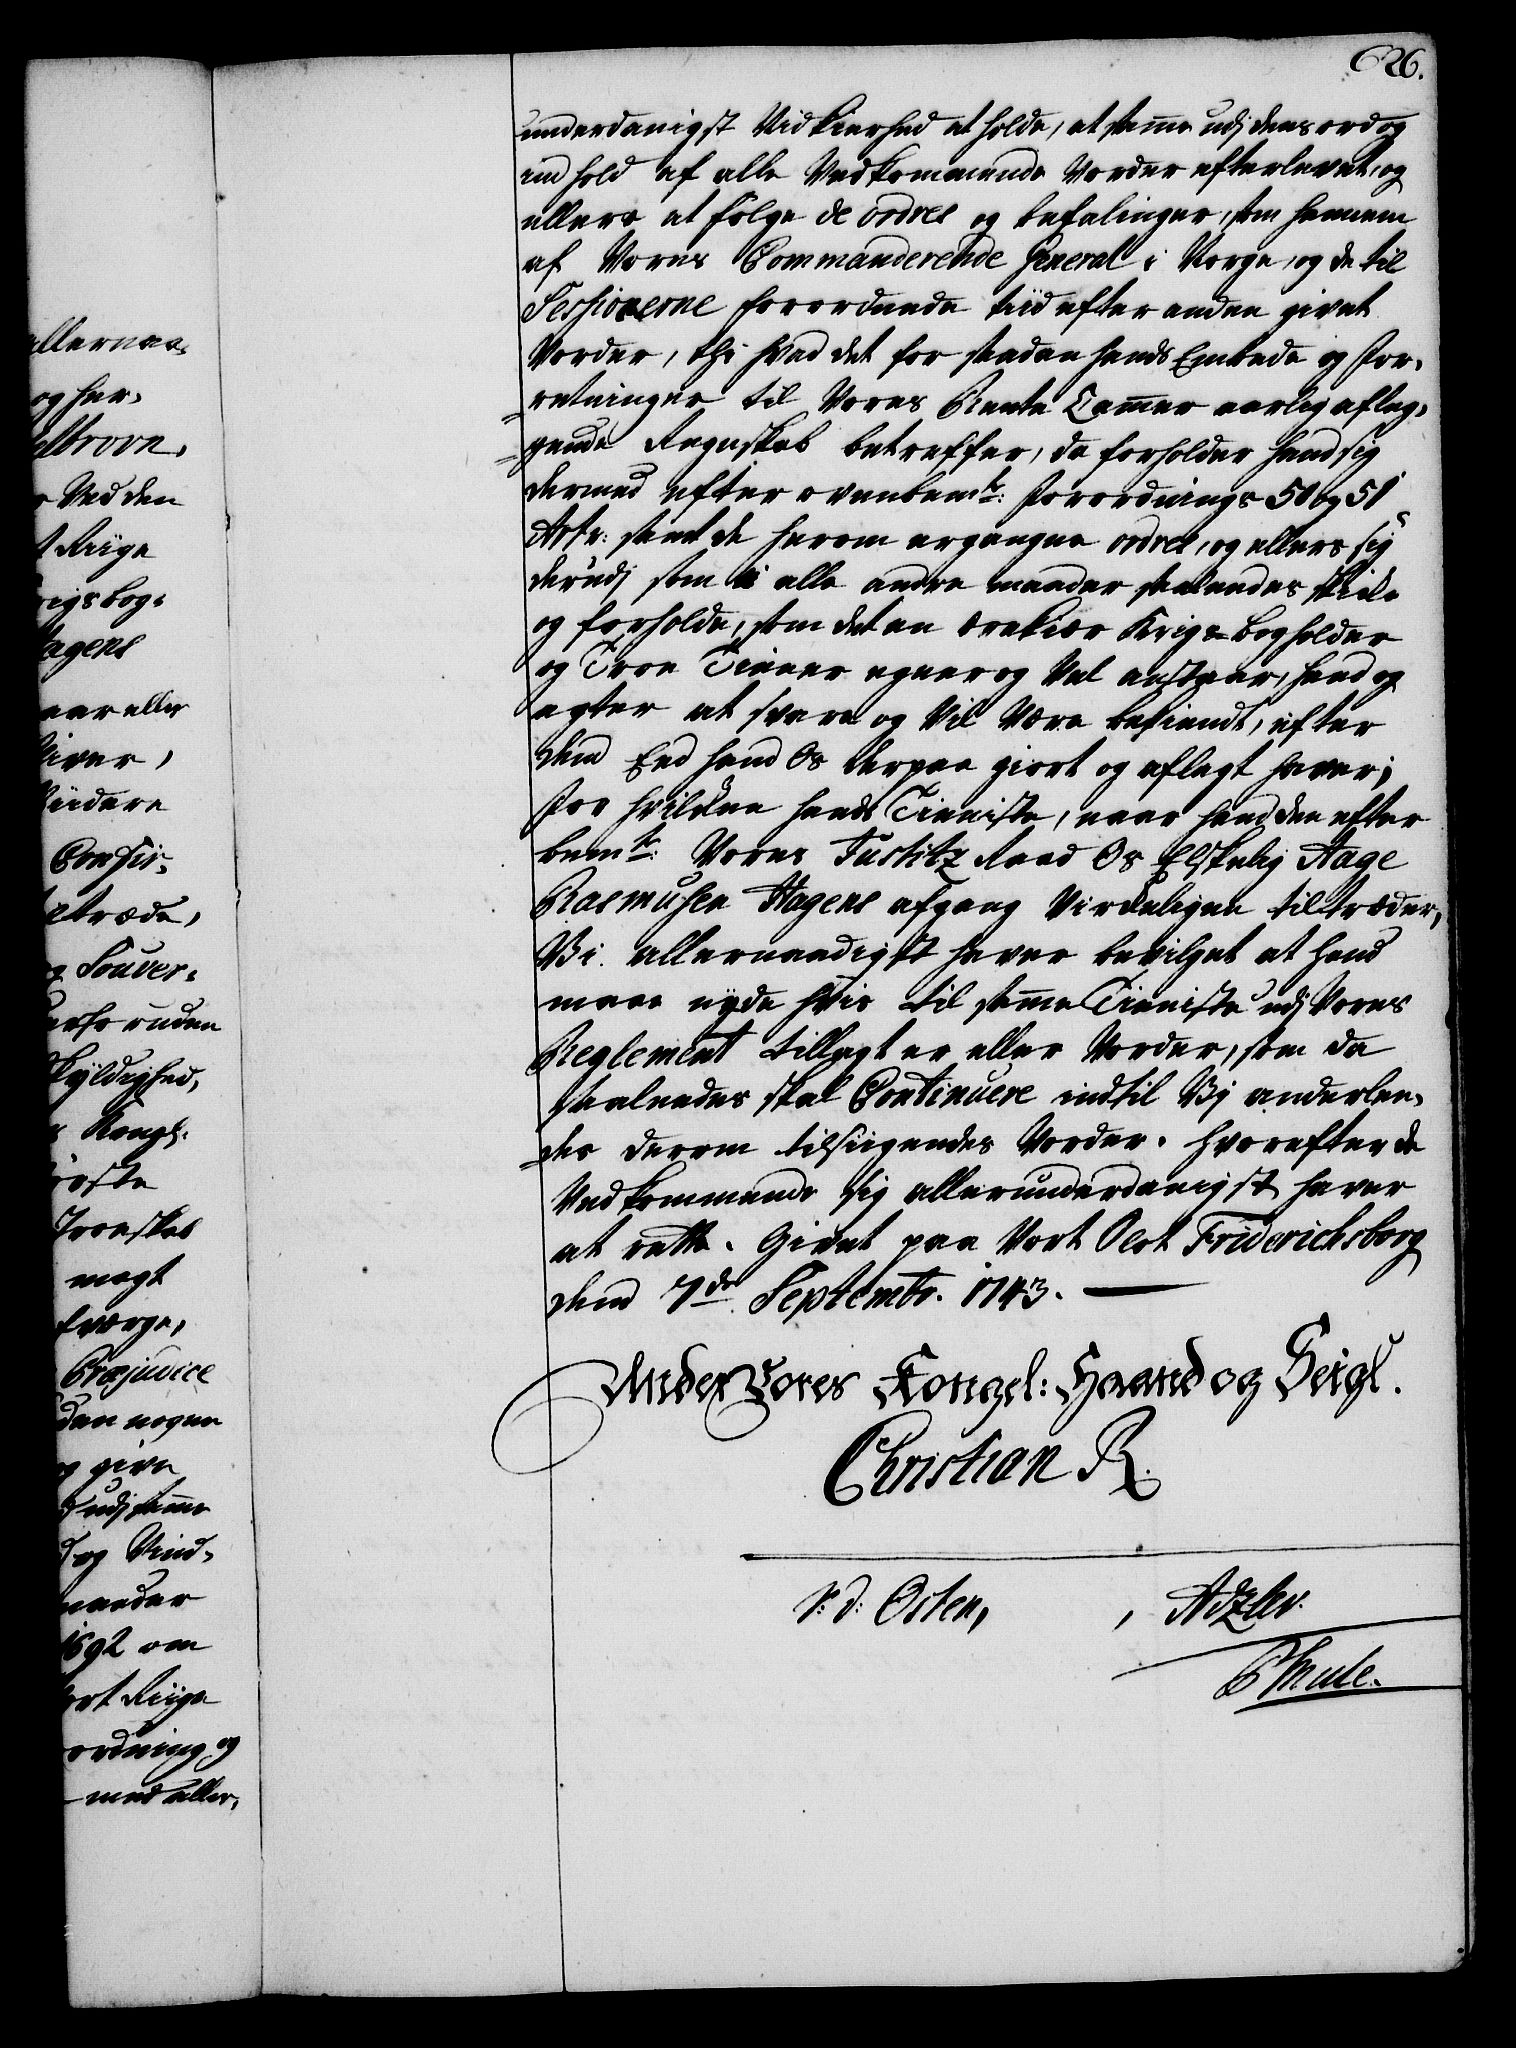 626.
underdanigst Vidkierhed at holde, at samme udj dens ord og
ind hold af alle Vedkommende Vorder efterlevet, og
ellers at følge de ordres og befalinger, som hannem
af Vores Commanderende General i Norge, og de til
Sessionerne forordnede tiid efter anden givet
Vorder, thi hvad det for saadan hands Embede og for-
retninger til Vores Rente Cammer aarlig aflæg-
gende Regnskab betreffer, da forholder hand sig
dermed efter ovenbemte: forordnings 50 og 51
Artr: samt de herom ergangne ordres, og ellers sig
derudj som i alle andre maader saaledes skicke
og forholde, som det en ærekiær Krigs-bogholder
og Troe Tienner egner og Vel anstaar, hand og
agter at svare og Vil Være bekiendt, efter
dend Eed hand Os derpaa giort og aflagt haver;
for hvilcken hands Tienniste, naar hand den efter
bemte: Vores Justitz Raad Os Elskelig Aage
Rasmusen Hagens afgang Virckeligen tiltræder,
Vi allernaadigst haver bevilget at hand
maae nyde hvis til samme Tienniste udj Vores
Reglement tillagt er eller Vorder, som da
saaledes skal Continuere indtil Vij anderlee-
des derom tilsiigendes Vorder. Hvorefter de
Vedkommende sig allerunderdanigst haver
at rette. Givet paa Vort Slot Friderichsborg
dend 7de Septembr. 1743.
Under Vores Kongel: Haand og Seigl.
Christian R.
v: d: Osten, , Adzlev.
C Mule.
allernaa-
og her-
Ved den
t Riige
rigs bog-
Hagens
aar eller
Viidere
Consir-
etræde,
g Souver-
skyldighed,
Kongl.
Troeskab
magt
Præjudice
uden nogen
og give
udj samme
og Vind-
maader
1692 om
Vort Riige
ordning og
med aller-